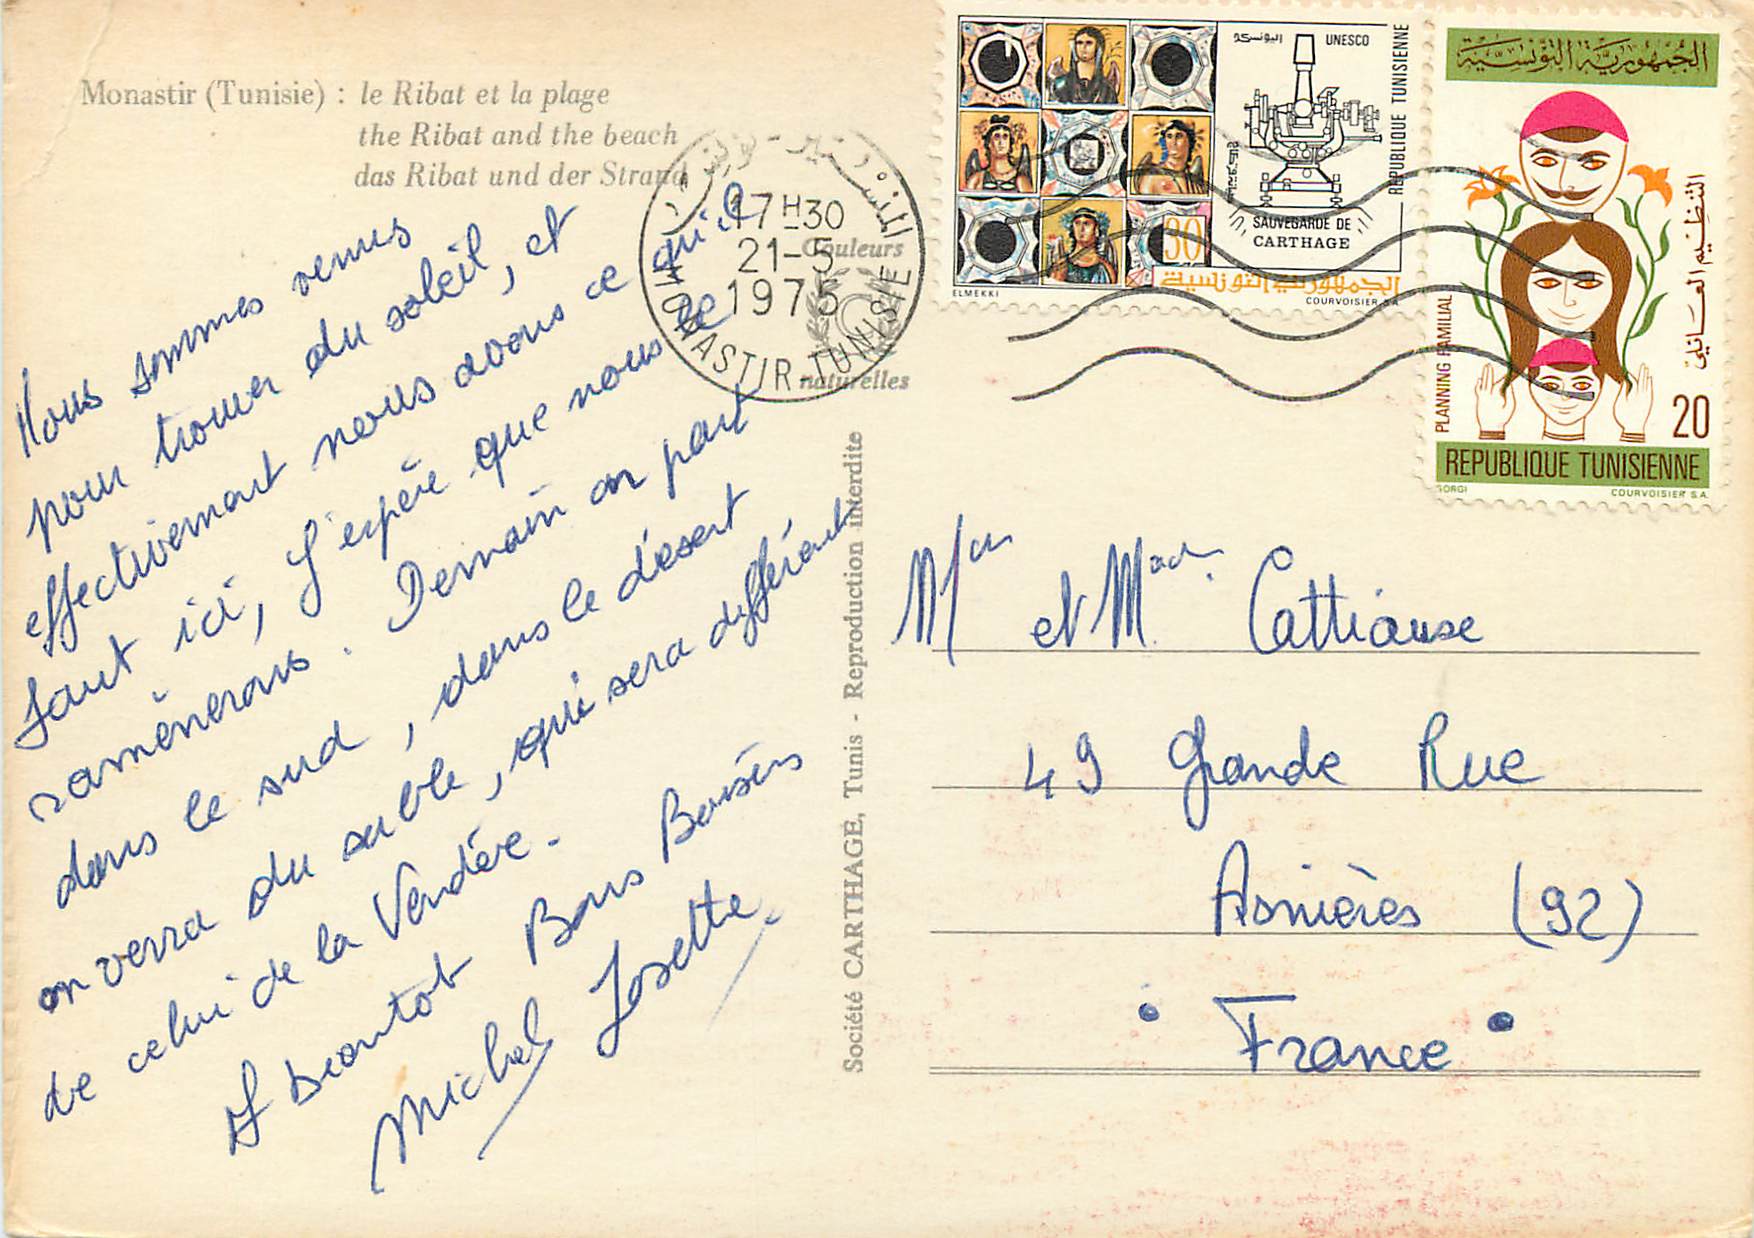 Monastir (Tunisie) : le Ribat et la plage
the Ribat and the beach
das Ribat und der Strand
Nous sommes venus
pour trouver du soleil, et
effectivement nous avons ce qu'il
faut ici, J'espère que nous le
ramènerons. Demain on part
dans le sud, dans le désert
on verra du sable, qui sera différent
de celui de la Vendée.
A bientôt Bons Baisers
Michel Josette
المنستير - تونس
17 H 30
21-5
1975
MONASTIR-TUNISIE
Couleurs
naturelles
Société CARTHAGE, Tunis - Reproduction interdite
اليونسكو UNESCO
REPUBLIQUE TUNISIENNE
SAUVEGARDE DE
CARTHAGE
30
الجمهورية التونسية
ELMEKKI COURVOISIER S.A.
الجمهورية التونسية
التنظيم العائلي
PLANNING FAMILIAL
20
REPUBLIQUE TUNISIENNE
GORGI COURVOISIER S.A.
et Cattiause
49 Grande Rue
Asnières (92)
France